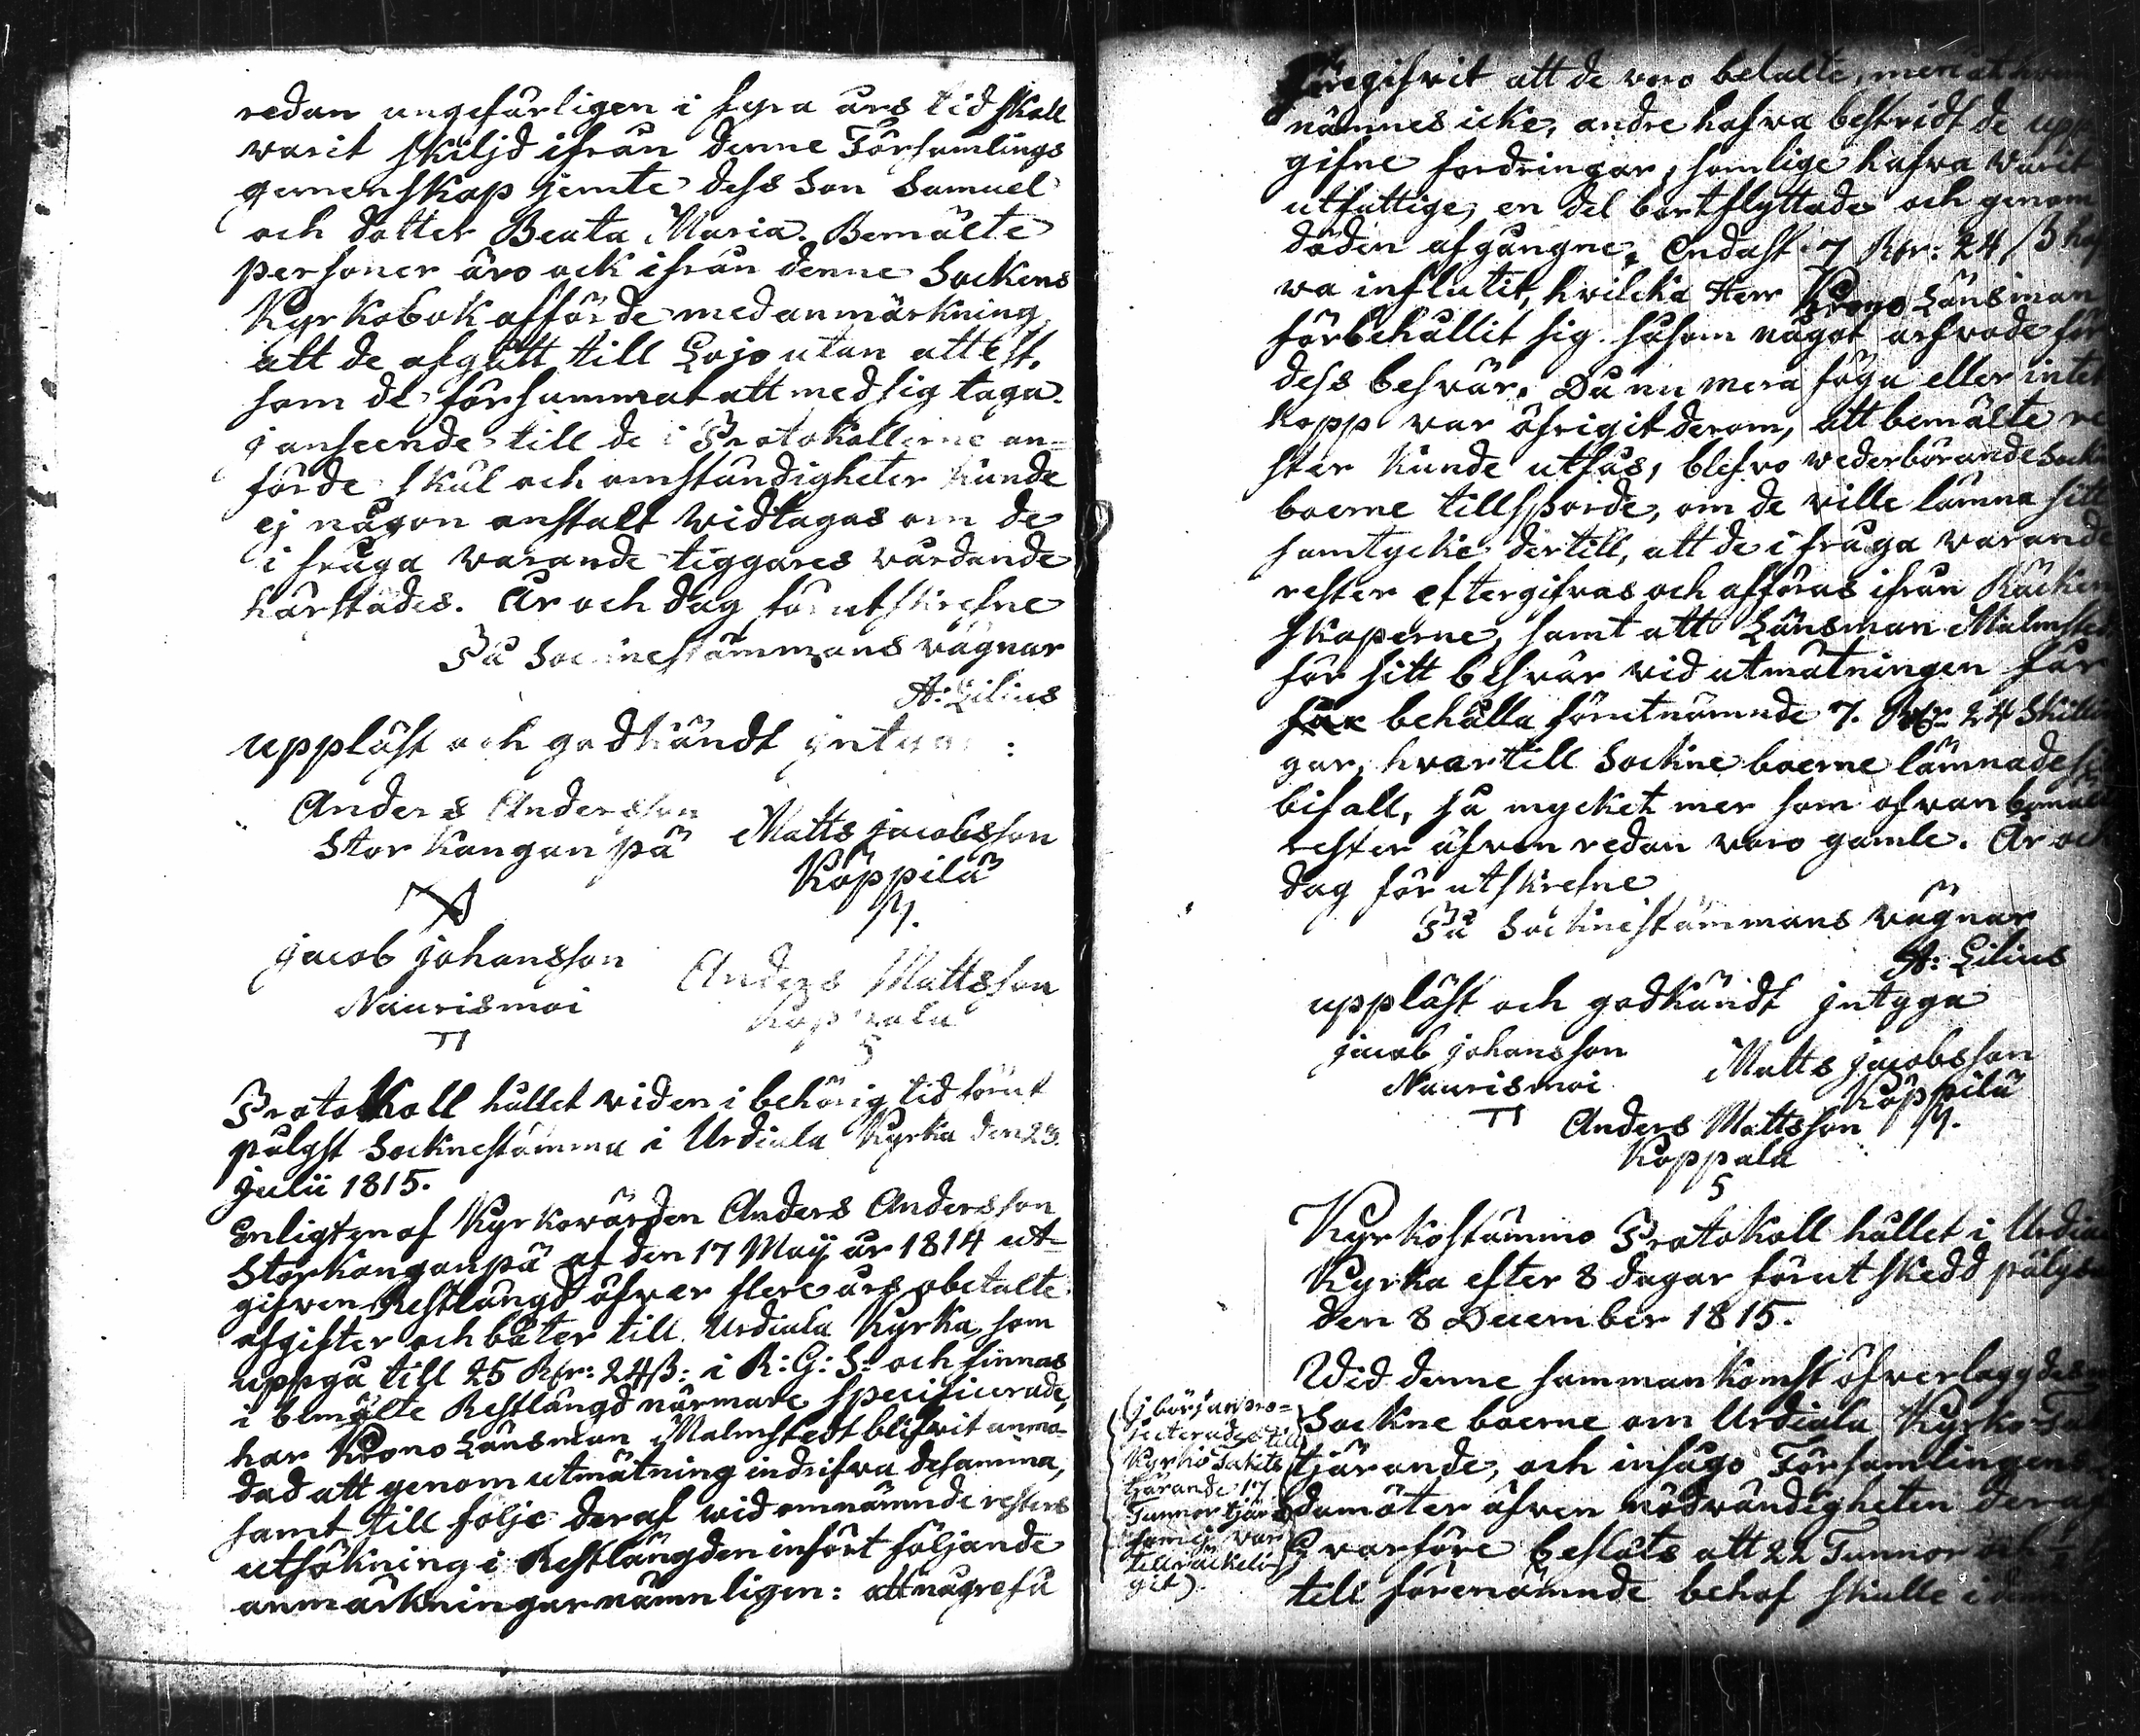 redan ungefärligen i fyra års tid skall
varit skiljd ifrån denne Församlings
gemenskap jemte dess Son Samuel
och dotter Beata Maria. Bemälte
personer äro ock ifrån denne Sockens
Kyrkobok afförde med anmärkning,
att de afgått till Lojo utan attest,
som de försummat att med sig taga.
j anseende till de i Protokollerne an-
förde skäl och omständigheter kunde
ej någon anstalt vidtagas om de
i fråga varande tiggares vårdande
härstädes. År och dag förutskrefne
På Socknestämmans vägnar
A: Lilius
uppläst och godkändt jntyga:
Anders Andersson
Storkanganpä
Matts jacobsson
Köppilä
jacob johansson
Naurismoi
Anders Mattsson
Koppala
Protokoll hållet vid en i behörig tid förut
pålyst Socknestämma i Urdiala Kyrka den 23.
Julii 1815.
Enligt en af Kyrkovärden Anders Andersson
Storkanganpä af den 17 Maij år 1814 ut-
gifven Restlängd öfver flere års obetalte
afgifter och böter till Urdiala Kyrka, som
uppgå till 25 Rdr: 24 ß: i R: G: S: och finnas
i bemälte Restlängd närmare specificerade,
har Krono Länsman Malmstedt blifvit anmo-
dad att genom utmätning indrifva desamma,
samt till följe deraf vid omnämnde resters
utsökning i Restlängden infört följande
anmärkningar nämnligen: att någre få
föregifvit att de voro betalte, men åt hvem
nämnes icke, andre hafva bestridt de upp-
gifne fordringar, somlige hafva varit
utfattige, en del bortflyttade och genom
döden afgångne. Endast 7 Rdr: 24 ß haf
va influtit, hvilcka Herr Krono Länsman
förbehållit sig såsom något arfvode för
dess besvär. Då nu mera föga eller intet
hopp var öfrigit derom, att bemälte re
ster kunde utfås, blefvo vederbörande Sockne
boerne tillsporde, om de ville lämna sitt
samtycke dertill, att de i fråga varande
rester eftergifvas och afföras ifrån Räcken
skaperne, samt att Länsman Malmstedt
för sitt besvär vid utmätningen får
får behålla förutnämnde 7. Rdr 24 Skillin
gar, hvartill Sockneboerne lämnade sitt
bifall, så mycket mer som ofvan bemälte
rester äfven redan voro gamle. År och
dag förutskrefne
På Socknestämmans vägnar
A: Lilius
uppläst och godkändt jntyga
jacob johansson
Naurismoi
Matts jacobsson
Köppilä
Anders Mattsson
Koppala
Kyrkostämmo Protokoll hållet i Urdiala
Kyrka efter 8 dagar förut skedd pålysning
den 8 December 1815.
Wid denne sammankomst öfverlaggdes
Sockneboerne om Urdiala Kyrko Ta
tjärande, och insågo Församlingens
ledamöter äfven nödvändigheten deraf
hvarföre beslöts att 22 Tunnor
till förenämnde behof skulle i
(j början pro-
jecterades till
Kyrko Takets
tjärande 17
Tunnor tjära
som ej var
tillräckeli-
git).